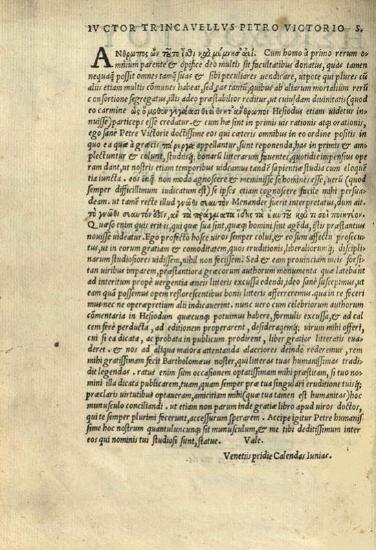 IVCTOR TRINCAVELLVS PETRO VICTORIO S.
Ἄνθρωπος ὢν τοῦτ᾽ ἴσθι καὶ μέμνησ᾽ ἀεί. Cum homo à primo rerum o
mnium parente & opifice deo multis sit facultatibus donatus, quas tamen
nequaq̃ possit omnes tanq̃ suas & sibi peculiares uendicare, utpote qui plures cũ
alijs etiam multi comunes habeat, sed eas tantũ, quibus ab aliarum mortalium rerũ
consortione segregatus, illis adeo præstabilior redditur, ut eiusdam diuinitatis (quod
Hesiodus etiam uidetur in
nuisse) particeps esse credatur. & cum hæ sint in primis uis rationis atq; orationis,
ego sane Petre Victorie doctissime eos qui cæteris omnibus in eo ordine positi in
quo ea quæ à græcis πάρεργα appellantur, sunt reponenda, has in primis & am
plectuntur & colunt, studiisq; bonarũ litterarum fauentes, quotidie impensius ope
ram dant, ut nostris etiam temporibus uideamus tandẽ sapientiæ studia cum eloquẽ
tia iuncta.
semper difficillimum iudicatum est) se ipsos etiam cognoscere facile mihi persua
deam. ut tanẽ recte illud γνῶθι σαυτὸν Menander fuerit interpretatus, dum ait
τὸ γνῶθι σαυτὸν ἔστιν, ἂν τὰ πράγματα ἴδῃς τὰ σαυτοῦ καὶ τί σοι ποιητέον.
Quæso enim quis erit, qui quæ sua sint, quæq; homini sint agẽda, istis præstantius
nouisse uideatur. Ego profecto hosce uiros semper colui, & eo sum affectu profecu
tus, ut in eorum gratiam & comoditatem, quos eruditionis, liberaliorumq; discipli
narum studiosiores uidissem, nihil non fecissem. Sed & eam prouinciam meis forsi
tan uiribus imparem, præstantiora græcorum authorum monumenta quæ latebant
ad interitum propè uergentia æneis litteris excussa edendi, ideo sanè suscepimus, ut
eam quã possemus opem reflorescentibus bonis litteris afferremus, quã in re feceri
mus nec ne operæpretium alii indicauerint. nunc uero cum celebriorum authorum
cõmentaria in Hesiodum quæcunq; potuimus habere, formulis excussa, & ad cal
cem ferè perducta, ad editionem properarent, desideraremq; uirum mihi offerri,
cui si ea dicata, ac probata in publicum prodirent, liber gratior litteratis euade
ret. & nos ad aliqua maiora attentanda alacriores deinde redderemur, rem
mihi gratissimam fecit Bartholomæus noster, qui litteras tuas humanissimas tradi
dit legendas. ratus enim sum occasionem optatissimam mihi præstitam, si tuo no
mini illa dicata publicarem, tuam, quam semper præ tua singulari eruditione tuisq;
præclaris uirtutibus optaueram, amicitiam mihi (quæ tua tamen est humanitas) hoc
munusculo conciliandi. ut etiam non parum inde gratiæ libro apud uiros doctos,
qui te semper plurimi fecerunt, accessurum sperarem. Accipe igitur Petre humanis
sime hoc nostrum quantuluncunq; sit munusculum, & me tibi deditissimum inter
eos qui nominis tui studiosi sunt, statue. Vale.
Venetijs pridie Calendas Iunias.